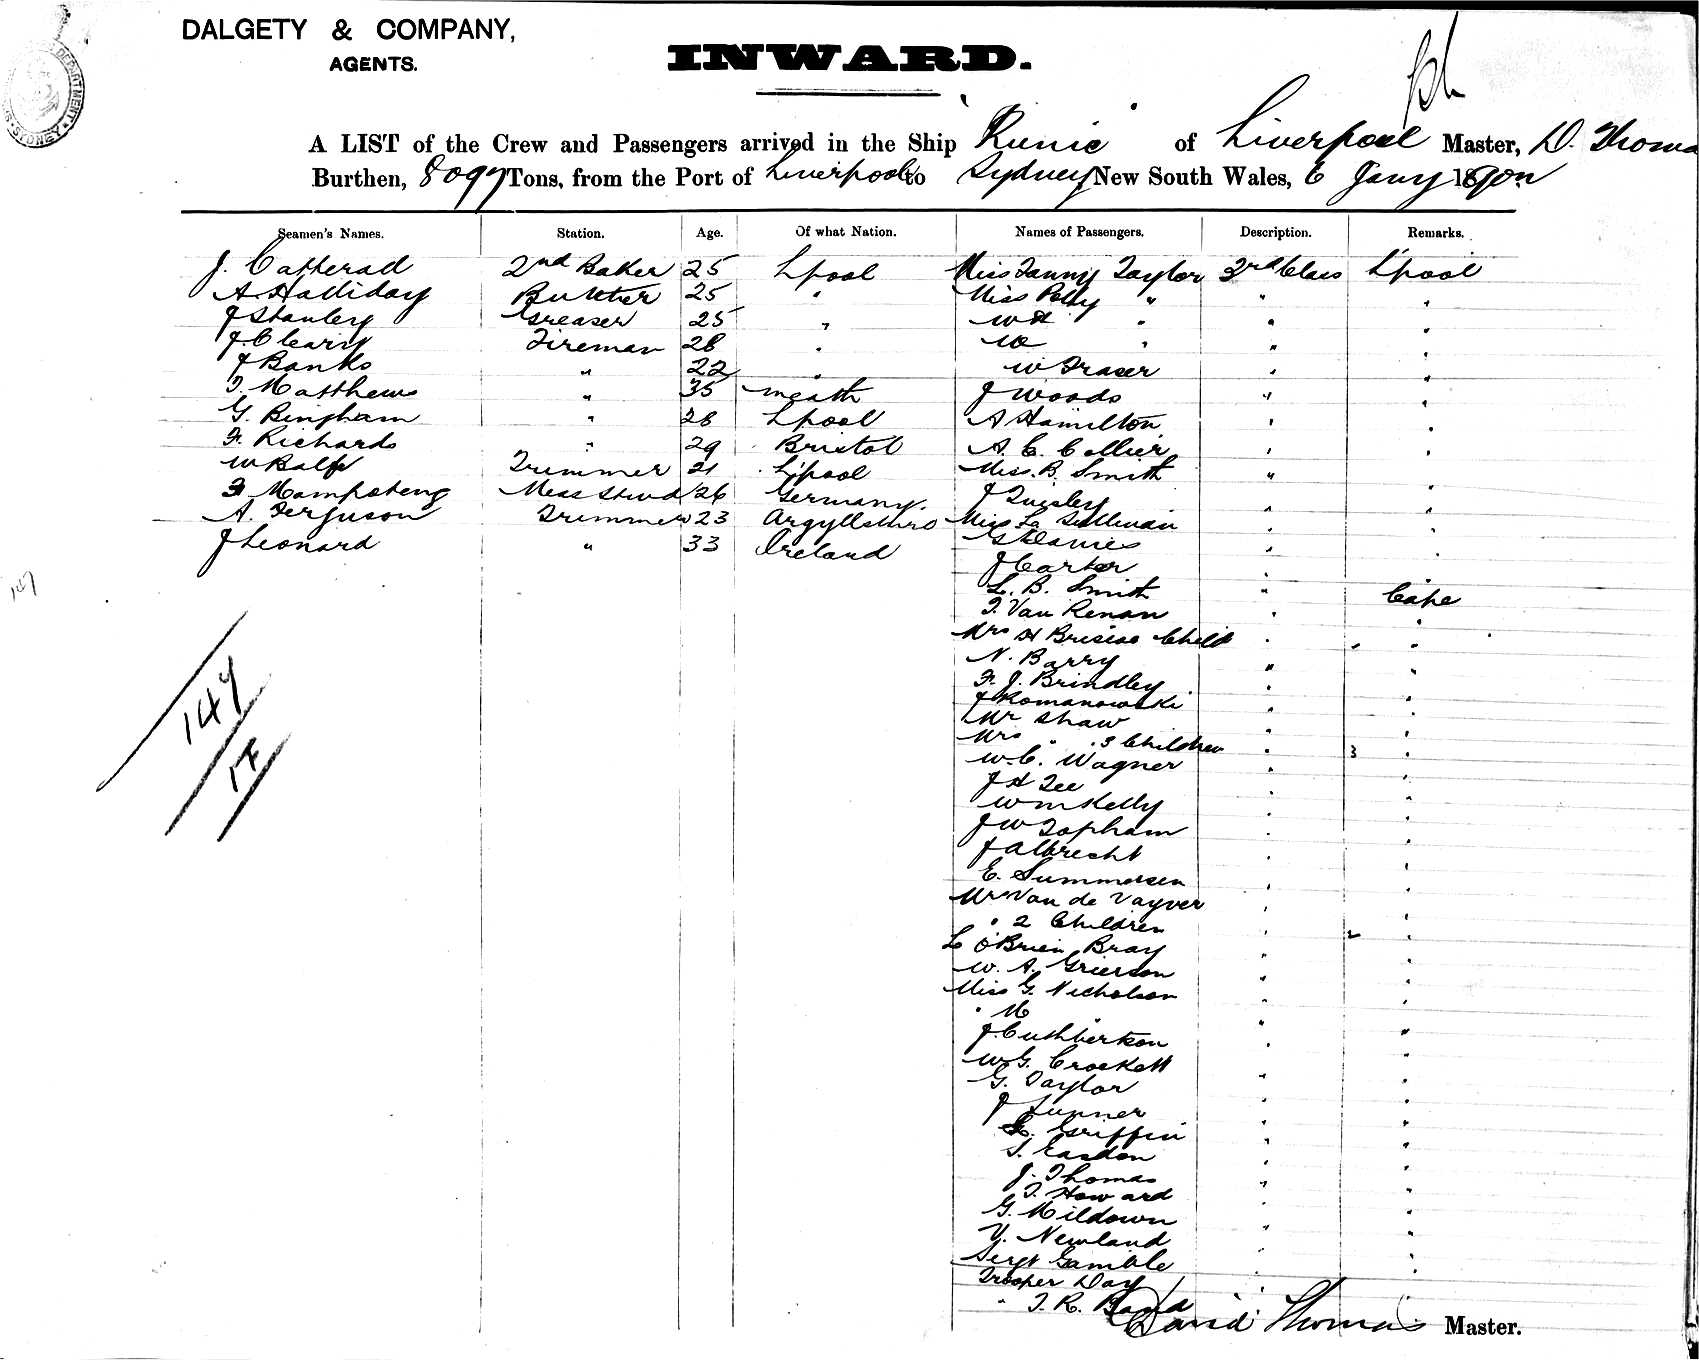 DALGETY & COMPANY,
AGENTS.
INWARD.
DEPARTMENT SYDNEY
A LIST of the Crew and Passengers arrived in the Ship "Runic" of Liverpool Master, D. Thomas
Burthen, 8097 Tons, from the Port of Liverpool to Sydney New South Wales, 6 Jany 1890
Seamen's Names. Station. Age. Of what Nation. Names of Passengers. Description. Remarks.
J. Catterad 2nd Baker 25 Lpool Miss Fanny Taylor 3rd Class Lpool
A. Halliday Butcher 25 " Miss Polly " " "
J Stanley Greaser 25 " W H " " "
J. Cleary Fireman 28 " W " " "
J Banks " 22 " W Fraser " "
T. Matthews " 35 Meath J Woods " "
G. Bingham " 28 Lpool A Hamilton " "
F. Richards " 29 Bristol A. C. Collier " "
W Balfe Trimmer 21 Lpool Miss. B. Smith " "
Mess Stwd 26 Germany. J Quigley " "
A. Ferguson Trimmer 23 Argyllshire Miss L. Sullivan " "
J Leonard " 33 Ireland G Davies " "
J Carter " "
L. B. Smith " Cape
T. Van Renan " "
Mrs H Child " " "
N. Barry " "
F. J. Brindley " "
J Romanowski " "
Mr Shaw " "
Mrs " 3 Children " 3 "
W. C. Wagner " "
J H Lee " "
W m Kelly " "
J W Topham " "
J Albrecht " "
E. Summersen " "
Mrs Van de Vayver " "
" 2 Children " 2 "
L O'Brien Bray " "
W. A. Grierson " "
Miss G. Nicholson " "
" M " " "
J. Cuthbertson " "
W. G. Crockett " "
G. Taylor " "
J Lunner " "
Griffin " "
S. Easdon " "
J. Thomas " "
T. Howard " "
G. Mildown " "
V. Newland " "
Sergt Gamble " "
Trooper Day
" T. R.
David Thomas Master.
147
147
17